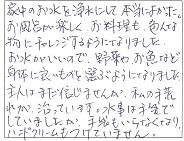 家中のお水を浄水にして本当によかった。
お風呂が楽しく、お料理も、色んな
物にチャレンジするようになりました。
お水がいいので、野菜やお魚など
身体に良いものを選ぶようになりました
主人はまだ信じませんが、私の手荒
れが、治っています。水事は手袋で
していましたが、手袋もいらなくなり、
ハンドクリームもつけていません。